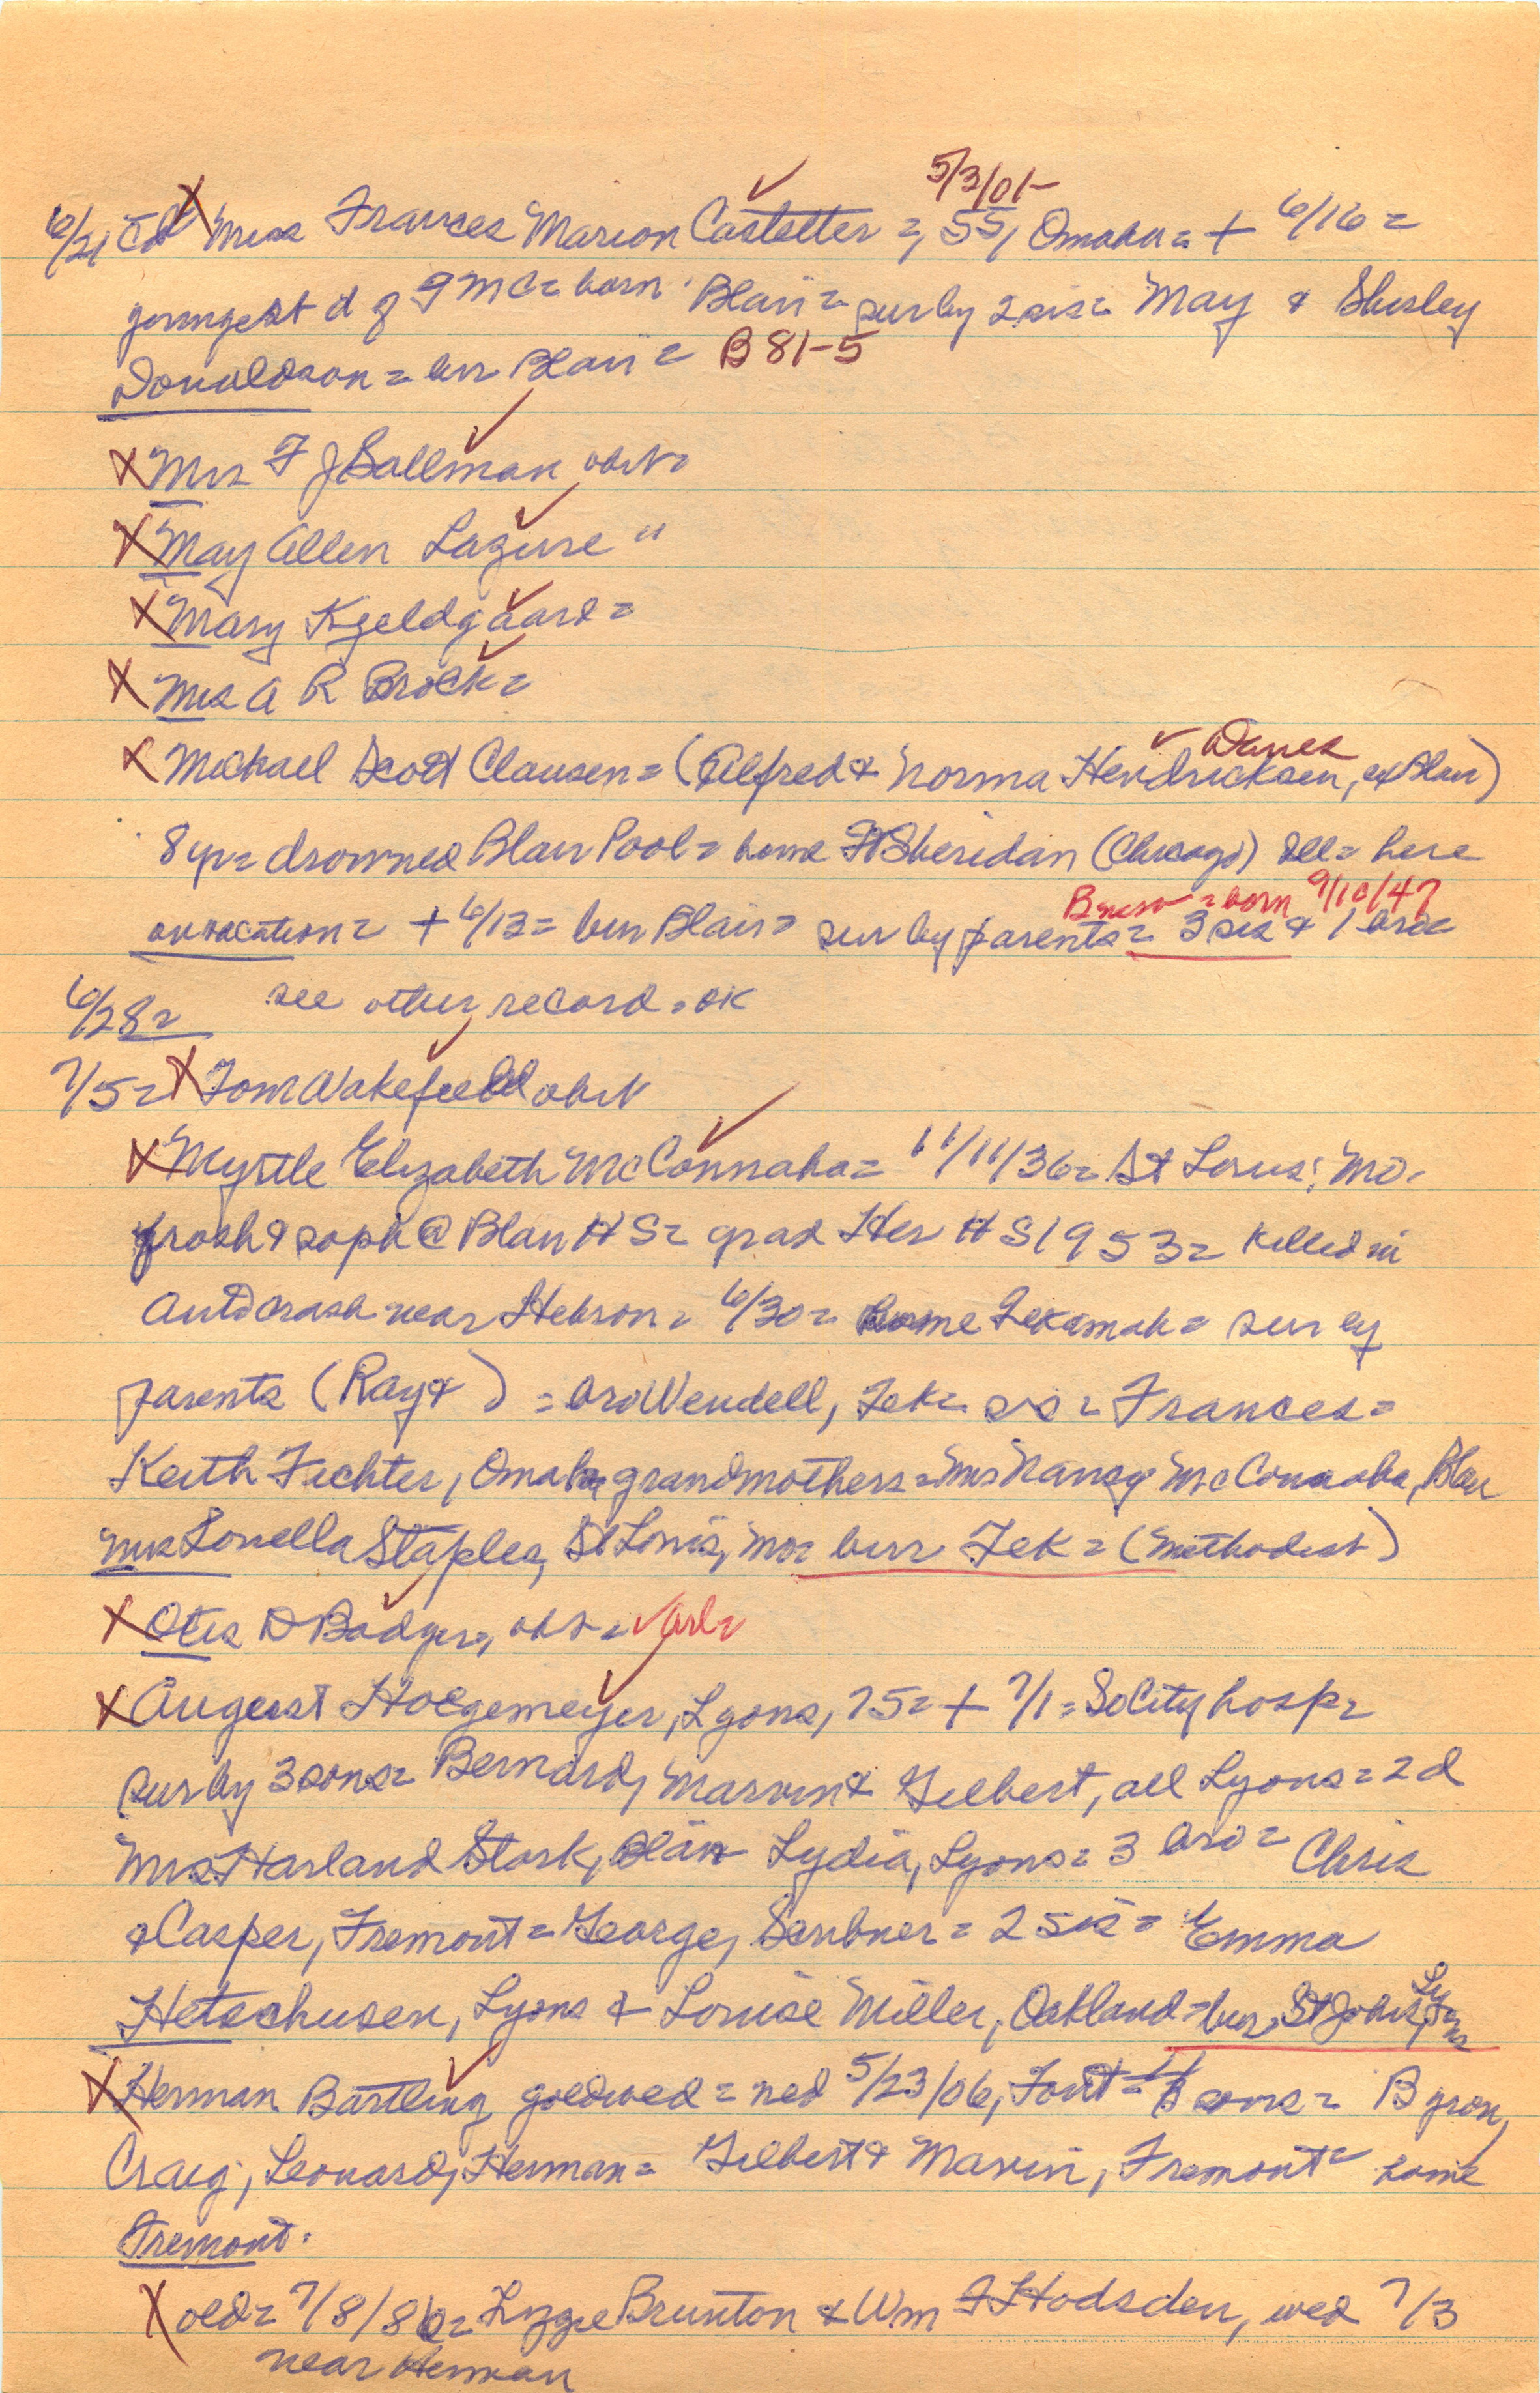 5/3/01-
6/21 Miss Frances Marion Castetter =, 55, Omaha = + 6/16 =
youngest d of G M C = born Blair = sur by 2 sis = May & Shirley
Donaldson = bur Blair = B 81-5
X Mrs F J Sallman obit =
X May Allen Lazure "
X Mary Kjeldgaard =
X Mrs A R Brock =
Danes
X Michael Scott Clausen = (Alfred & Norma Hendricksen, ex Blair)
8 yr = drowned Blair Pool = home Ft Sheridan (Chicago) Ill = here
= born 9/10/47
on vacation = + 6/13 = bur Blair = sur by parents = 3 sis & 1 bro =
6/28 = see other record = OK
7/5 = X Tom Wakefield obit
X Myrtle Elizabeth McConnaha = 11/11/36 = St Louis, Mo.
frosh & soph @ Blair H S = grad Her H S 1953 = killed in
auto crash near Hebron = 6/30 = home Tekamah = sur by
parents (Ray & ) = bro Wendell, Tek = sis = Frances =
Keith Fechter, Omaha grandmothers = Mrs Nancy McConnaha, Blair
Mrs Louella Staples, St Louis, Mo = bur Tek = (Methodist)
X Otis D Badger =, obit = Arl =
X August Hoegemeyer, Lyons, 75 = + 7/1 = So City hosp =
sur by 3 sons = Bernard, Marvin & Gilbert, all Lyons = 2 d
Mrs Harland Stork, Blair Lydia, Lyons = 3 bro = Chris
& Casper, Fremont = George, Scribner = 2 sis = Emma
Hetschusen, Lyons & Louise Miller, Oakland = bur, St Johns, Lyons
X Herman Bartling gold wed = wed 5/23/06, Font = 6 sons = Byron,
Craig; Leonard, Herman = Gilbert & Marvin, Fremont = home
Fremont.
X old = 7/8/86 = Lizzie Brunton & Wm F Hodsden, wed 7/3
near Herman